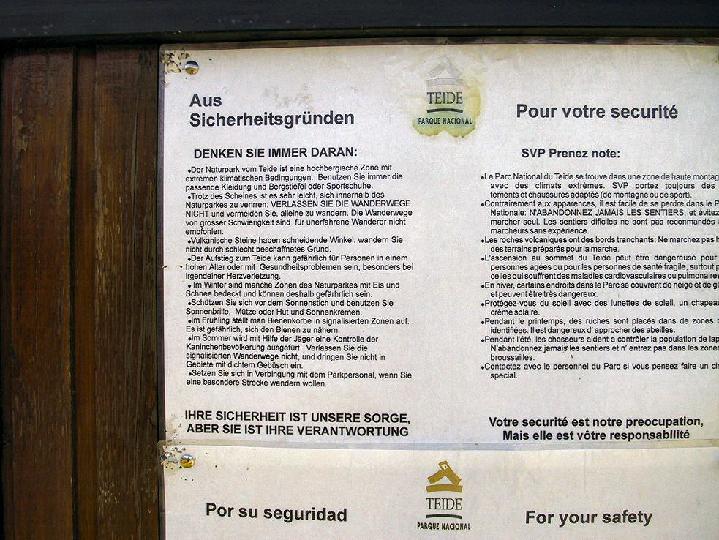 Aus
Sicherheitsgründen
DENKEN SIE IMMER DARAN:
•Der Naturpark vom Teide ist eine hochbergische Zone mit
extremen klimatischen Bedingungen. Benutzen Sie immer die
passende Kleidung und Bergstiefel oder Sportschuhe.
•Trotz des Scheines ist es sehr leicht, sich innerhalb des
Naturparkes zu verirren. VERLASSEN SIE DIE WANDERWEGE
NICHT und vermeiden Sie, alleine zu wandern. Die Wanderwege
von grosser Schwierigkeit sind für unerfahrene Wanderer nicht
empfohlen.
•Vulkanische Steine haben schneidende Winkel, wandern Sie
nicht durch schlecht beschaffnetes Grund.
•Der Aufstieg zum Teide kann gefährlich für Personen in einem
hohen Alter oder mit Gesundheitsproblemen sein, besonders bei
irgendeiner Herzverletzung.
•Im Winter sind manche Zonen des Naturparkes mit Eis und
Schnee bedeckt und können deshalb gefährlich sein.
•Schützen Sie sich vor dem Sonnenstich und benutzen Sie
Sonnenbrille, Mütze oder Hut und Sonnenkremen.
•Im Frühling stellt man Bienenkörbe in signalisierten Zonen auf.
Es ist gefährlich, sich den Bienen zu nähern.
•Im Sommer wird mit Hilfe der Jäger eine Kontrolle der
Kaninchenbevölkerung ausgeführt. Verlassen Sie die
signalisierten Wanderwege nicht, und dringen Sie nicht in
Gebiete mit dichtem Gebüsch ein.
•Setzen Sie sich in Verbingung mit dem Parkpersonal, wenn Sie
eine besondere Strecke wandern wollen.
IHRE SICHERHEIT IST UNSERE SORGE,
ABER SIE IST IHRE VERANTWORTUNG
TEIDE
PARQUE NACIONAL
Pour votre securité
SVP Prenez note:
•Le Parc National du Teide se trouve dans une zone de haute montag
avec des climats extrêmes. SVP portez toujours des
tements et chaussures adaptés (de montagne ou de sport).
•Contrairement aux apparences, il est facile de se perdre dans le P
Nationale: N'ABANDONNEZ JAMAIS LES SENTIERS, et évitez
marcher seul. Les sentiers difficiles ne sont pas recommendés
marcheurs sans expérience.
•Les roches volcaniques ont des bords tranchants: Ne marchez pas h
des terrains préparés pour la marche.
•L'ascension au sommet du Teide peut être dangereuse pour
personnes agées ou pour les personnes de santé fragile, surtout p
celles qui souffrent des maladies cardiovasculaires ou pulmonaire
•En hiver, certains endroits dans le Parc se couvrent de neige et de gl
et peuvent être très dangereux.
•Protégez-vous du soleil avec des lunettes de soleil, un chapeau
crème solaire.
•Pendant le printemps, des ruches sont placés dans de zones
identifiées. Il est dangereux d'approcher des abeilles.
•Pendant l'été, les chasseurs aident a contrôler la population de lap
N'abandonnez jamais les sentiers et n'entrez pas dans les zones
broussailles.
•Contactez avec le personnel du Parc si vous pensez faire un ch
spécial.
Votre securité est notre preocupation,
Mais elle est vôtre responsabilité
Por su seguridad
TEIDE
PARQUE NACIONAL
For your safety